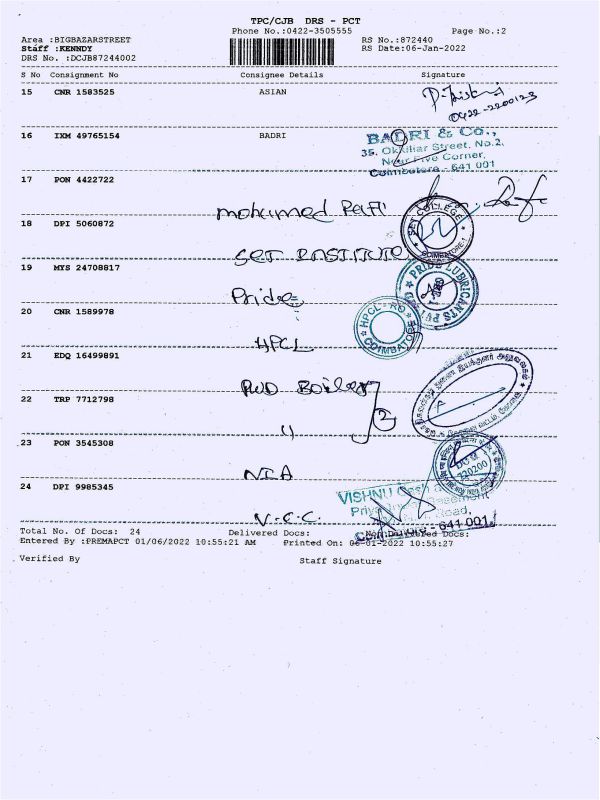 TPC/CJB DRS - PCT
Phone No.:0422-3505555 Page No.:2
Area :BIGBAZARSTREET RS No.:872440
Staff :KENNDY RS Date:06-Jan-2022
DRS No. :DCJB87244002
S No Consignment No Consignee Details Signature
15 CNR 1583525 ASIAN
0422-2200123
16 IXM 49765154 BADRI
BADRI & Co.,
35, Okkiliar Street, No.2,
Near Five Corner,
Coimbatore - 641 001
17 PON 4422722
mohamed Rafi
18 DPI 5060872
SET COLLEGE
COIMBATORE-1
SET INSTITUTE
19 MYS 24708817
PRIDE LUBRICANTS PVT
Pride
20 CNR 1589978
HPCL - RO
COIMBATORE
HPCL
21 EDQ 16499891
PWD Boiler
22 TRP 7712798
11
23 PON 3545308
NIA
720200
24 DPI 9985345
VISHNU Cash
Road,
- 641 001
V.C.C.
Total No. Of Docs: 24 Delivered Docs: Docs:
Entered By :PREMAPCT 01/06/2022 10:55:21 AM Printed On: 06-01-2022 10:55:27
Verified By Staff Signature